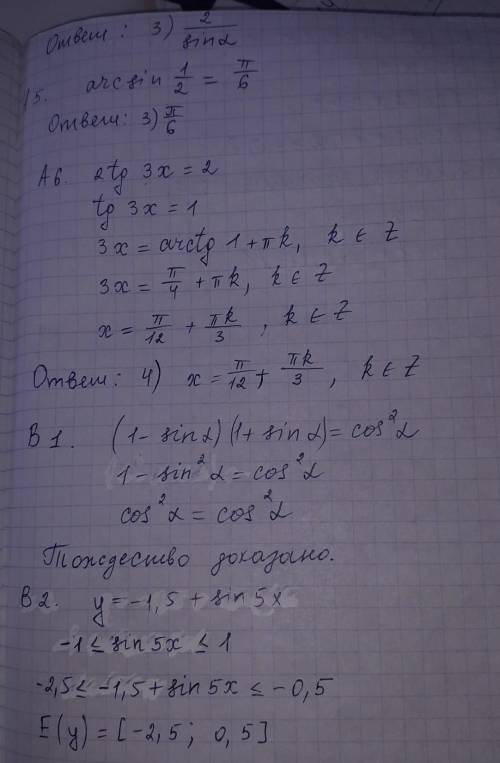 Ответ: 3) 2/sinα
15. arcsin 1/2 = π/6
Ответ: 3) π/6
А6. 2tg 3x = 2
tg 3x = 1
3x = arctg 1 + πk, k ∈ Z
3x = π/4 + πk, k ∈ Z
x = π/12 + πk/3, k ∈ Z
Ответ: 4) x = π/12 + πk/3, k ∈ Z
В1. (1 - sinα)(1 + sinα) = cos²α
1 - sin²α = cos²α
cos²α = cos²α
Тождество доказано.
В2. y = -1,5 + sin 5x
-1 ≤ sin 5x ≤ 1
-2,5 ≤ -1,5 + sin 5x ≤ -0,5
E(y) = [-2,5; 0,5]